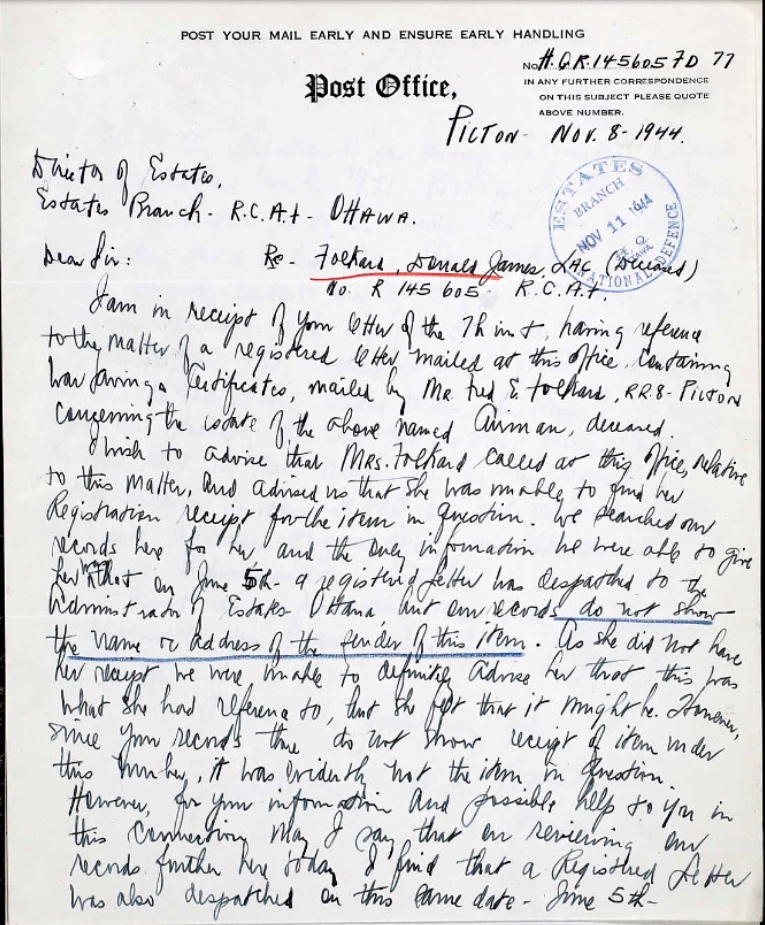 POST YOUR MAIL EARLY AND ENSURE EARLY HANDLING
No. H.Q.R.145605 FD 77
IN ANY FURTHER CORRESPONDENCE
ON THIS SUBJECT PLEASE QUOTE
ABOVE NUMBER.
Post Office,
PICTON - NOV. 8 - 1944.
Director of Estates,
Estates Branch - R.C.A.F - OTTAWA.
ESTATES
BRANCH
NOV 11 1944
OTTAWA
NATIONAL DEFENCE
Dear Sir: Re - Folkard, Donald James, LAC (Deceased)
No. R 145 605 - R.C.A.F.
I am in receipt of your letter of the 7th inst, having reference
to the matter of a registered letter mailed at this office, containing
War Savings Certificates, mailed by Mr. Fred E. Folkard, RR.8 - PICTON
concerning the estate of the above named Airman, deceased.
I wish to advise that Mrs. Folkard called at this office, relative
to this matter, and advised us that she was unable to find her
Registration receipt for the item in question. We searched our
records here for her and the only information we were able to give
her was that on June 5th - a registered letter was despatched to the
Administrator of Estates Ottawa but our records do not show
the name or address of the sender of this item. As she did not have
her receipt we were unable to definitely advise her that this was
what she had reference to, but she felt that it might be. However,
since your records there do not show receipt of item under
this number, it was evidently not the item in question.
However, for your information and possible help to you in
this connection may I say that on reviewing our
records further here today I find that a Registered Letter
was also despatched on this same date - June 5th -